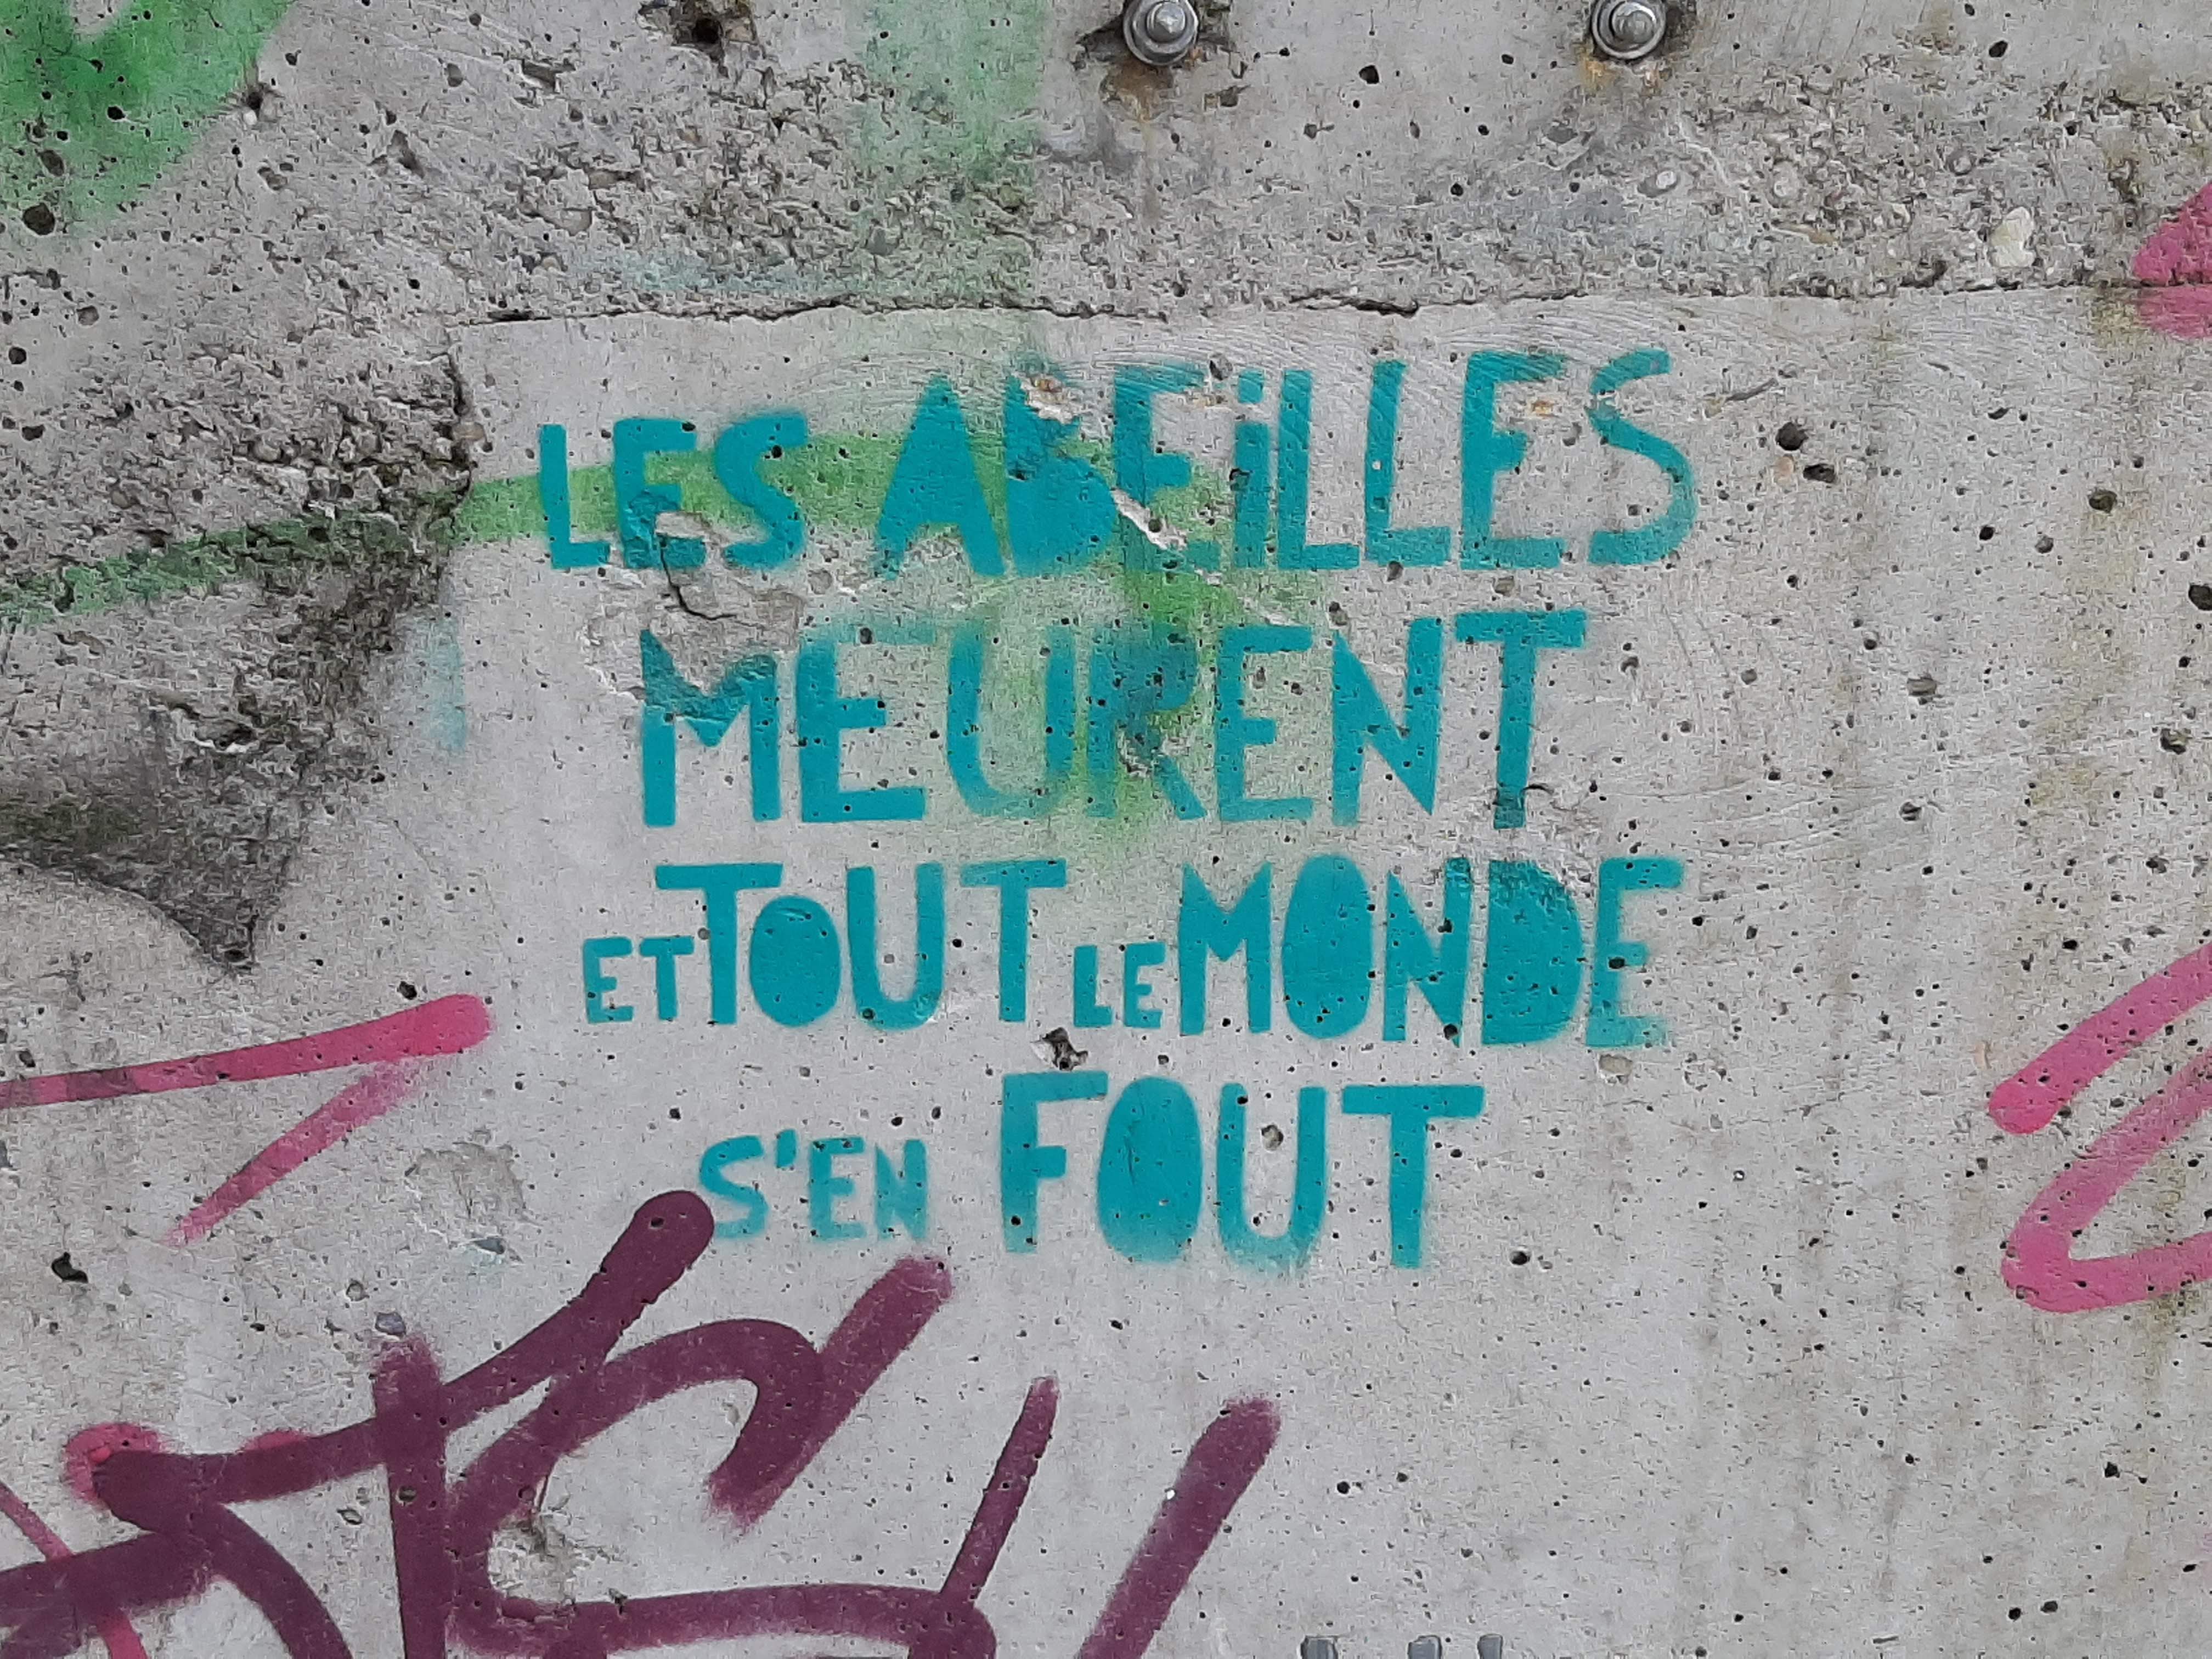 LES ABEiLLES
MEURENT
ET TOUT LE MONDE
S'EN FOUT